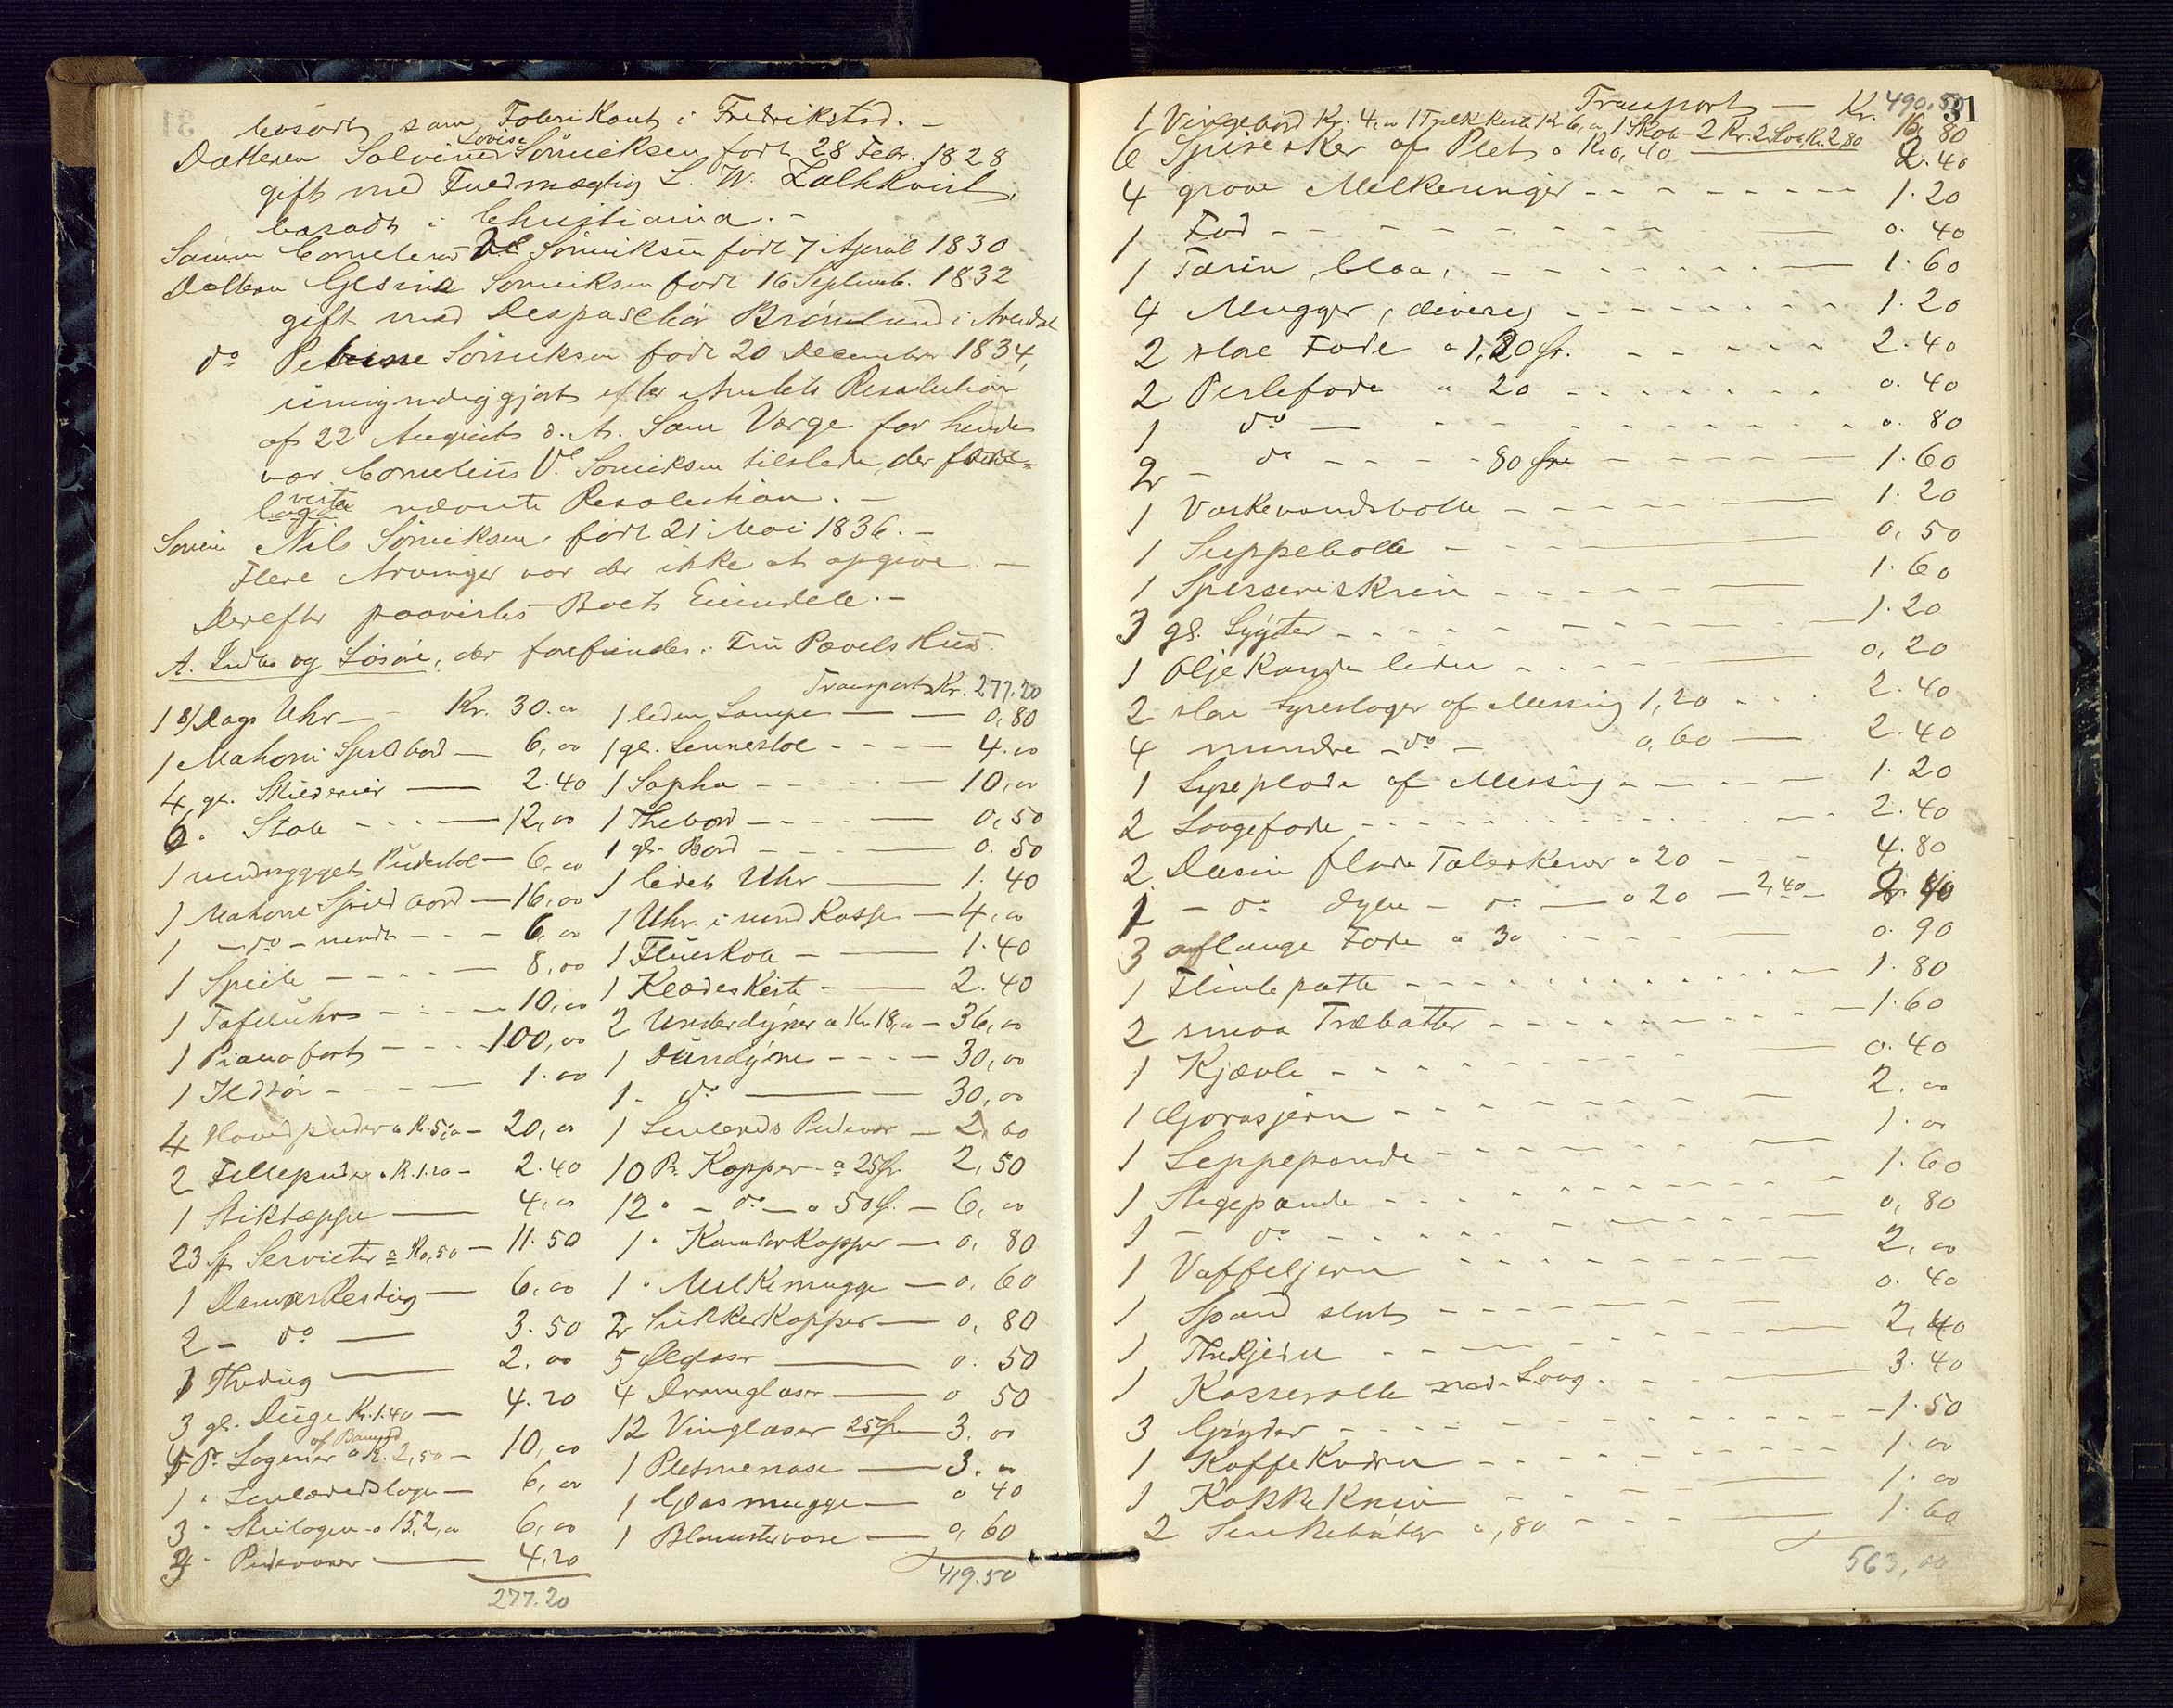 bosadt som Fabrikant i Fredriksstad. –
Datteren Solvine Lovise Sömeksen født 28 Febr. 1828
gift med Fuldmægtig L. W.
bosadt i Christiania. –
Sönnen Cornelius Vl Sömeksen født 7 April 1830
Datteren Gesine Sömeksen født 16 Septemb. 1832
gift med Despaschör Brömlund i Arendal
do Petrine Sömeksen født 20 December 1834,
umyndiggjort efter Amtets Resolution
af 22 August d. A. Som Værge for hende
var Cornelius Vl. Sömeksen tilstede, der frem=
lagde nævnte Resolution. –
Sönnen Nils Sömeksen født 21 Mai 1836. –
Flere Arvinger var der ikke at opgive. –
Derefter paavistes Boets Eiendele. –
A. Indbo og Lösöre, der forefindes i Fru Pavels Hus.
1 8/Dags Uhr – Kr. 30.00
1 Mahoni Spilbord – 6,00
4 gl. Skilderier – 2.40
6. Stole – 12,00
1 rundrygget Pudestol – 6,00
1 Mahoni Spisebord – 16,00
1 – do – rundt – 6,00
1 Speil – 8,00
1 Taffeluhr – 10,00
1 Pianofort – 100,00
1 Ildtör – 1.00
4 Hovedpuder a Kr. 5,00 – 20,00
2 Fillepuder a K. 1.20 – 2.40
1 Stiktæppe – 4,00
23 St. Servietter a K 0,50 – 11.50
1 DamaskesDug – 6,00
2 – do – 3.50
1 Thedug – 2.00
3 gl. Duge K. 1.40 – 4.20
Pr. Lagener af Bomuld a K. 2,50 – 10,00
1 " Lerlæredslagen – 6,00
3 " Strilagen – 6,00
" Pudevarer – 4.20
277.20
Transport Kr. 277.20
1 liden Lampe – 0,80
1 gl. Lænestol – 4.00
1 Sopha – 10,00
1 Thebord – 0,50
1 gl. Bord – 0.50
1 lidet Uhr – 1.40
1 Uhr i rund Kasse – 4,00
1 Flueskab – 1.40
1 Klædeskiste – 2.40
2 Underdyner a Kr 18,00 – 36,00
1 Dundyne – 30,00
1 – do – 30,00
1 Lerlereds Pudevar – 2,60
10 Pr. Kopper a 25 Ør. 2,50
12 " – do – a 50 Ø. – 6,00
1 " Kopper – 0,80
1 " Melkemugge – 0,60
2 SukkerKopper – 0,80
5 Ølglass – 0.50
4 Dramglasser – 0 50
12 Vinglasser 25 Ør – 3.00
1 Pletmenase – 3.00
1 Glasmugge – 0 40
1 Blomstervase – 0,60
419.50
31
Transport – Kr. 490.50
1 Vingebord Kr. 4,00 1 Kr 6,00 1 Skab – 2 Kr. 2 Stol K. 2,80 16,80
6 Spiseskeer af Plet a K 0,40 – 2.40
4 grove Melkeringer – 1.20
1 Fad – 0.40
1 Terrin, blaa, – 1.60
4 Mugger, diverse, – 1.20
2 store Fade a 1,20 Ør. – 2.40
2 Perlefade a 20 – 0.40
1 do – 0.80
2 – do – 80 Øre – 1.60
1 Vaskevandsbolle – 1.20
1 Suppebolle – 0,50
1 Spesseriskrin – 1.60
3 gl. Lygter – 1.20
1 Olje Kande liden – 0,20
2 store Lysestager af Messing 1,20 – 2.40
4 mindre – do – 0,60 – 2.40
1 Lyseplade af Messing – 1.20
2 Laagefade – 2.40
2 Dusin flade Talerkener a 20 – 4.80
1 – do dybe – do – a 20 – 2,40 – 2.40
3 aflange Fade a 30 – 0.90
1 – 1.80
2 smaa Træbøtter – 1.60
1 Kjævle – 0.40
1 Gorosjern – 2.00
1 Leppepande – 1.00
1 Stegepande – 1.60
1 – do – 0,80
1 Vaffeljern – 2,00
1 Spand slet – 0.40
1 TheKjedel – 2,40
1 Kasserolle med Laag – 3.40
3 Gryder – 1.50
1 KaffeKværn – 1.00
1 KakkeKniv – 1.00
2 a ,80 – 1.60
563,00